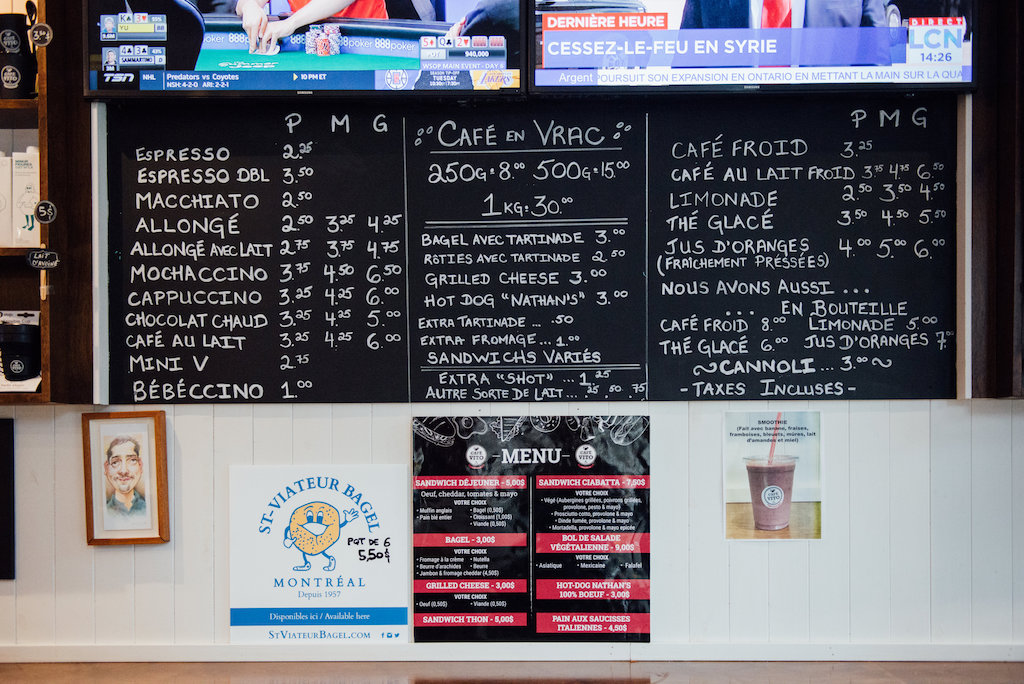 K 3
YU BB
4 3
SAMMARTINO SB
888poker 888poker
5 Q 2
POT 940,000
WSOP MAIN EVENT - DAY 6
TSN NHL Predators vs Coyotes 10 PM ET
NSH: 4-2-0 ARI: 2-2-1
SEASON TIP-OFF
TUESDAY
LAKERS
SAMSUNG
DERNIÈRE HEURE
CESSEZ-LE-FEU EN SYRIE
DIRECT
LCN
14:26
Argent POURSUIT SON EXPANSION EN ONTARIO EN METTANT LA MAIN SUR LA QUA
SAMSUNG
5$
LAIT D'AVOINE
P M G
ESPRESSO 2.25
ESPRESSO DBL 3.50
MACCHIATO 2.50
ALLONGÉ 2.50 3.25 4.25
ALLONGÉ AVEC LAIT 2.75 3.75 4.75
MOCHACCINO 3.75 4.50 6.50
CAPPUCCINO 3.25 4.25 6.00
CHOCOLAT CHAUD 3.25 4.25 5.00
CAFÉ AU LAIT 3.25 4.25 6.00
MINI V 2.75
BÉBÉCCINO 1.00
CAFÉ EN VRAC
250G=8.00 500G=15.00
1KG=30.00
BAGEL AVEC TARTINADE 3.00
ROTIES AVEC TARTINADE 2.50
GRILLED CHEESE 3.00
HOT DOG "NATHAN'S" 3.00
EXTRA TARTINADE ... .50
EXTRA FROMAGE... 1.00
SANDWICHS VARIÉS
EXTRA "SHOT" ... 1.25
AUTRE SORTE DE LAIT... .25 .50 .75
P M G
CAFÉ FROID 3.25
CAFÉ AU LAIT FROID 3.75 4.75 6.50
LIMONADE 2.50 3.50 4.50
THÉ GLACÉ 3.50 4.50 5.50
JUS D'ORANGES 4.00 5.00 6.00
(FRAÎCHEMENT PRESSÉES)
NOUS AVONS AUSSI ...
... EN BOUTEILLE
CAFÉ FROID 8.00 LIMONADE 5.00
THÉ GLACÉ 6.00 JUS D'ORANGES 7.00
~CANNOLI... 3.00~
-TAXES INCLUSES-
ST-VIATEUR BAGEL
PQT DE 6
5,50$
MONTRÉAL
Depuis 1957
Disponibles ici / Available here
STVIATEURBAGEL.COM
CAFÉ VITO -MENU- CAFÉ VITO
SANDWICH DÉJEUNER - 5,00$
Oeuf, cheddar, tomates & mayo
VOTRE CHOIX
• Muffin anglais • Bagel (0,50$)
• Pain blé entier • Croissant (1,00$)
• Viande (0,50$)
BAGEL - 3,00$
VOTRE CHOIX
• Fromage à la crème • Nutella
• Beurre d'arachides • Beurre
• Jambon & fromage cheddar (4,50$)
GRILLED CHEESE - 3,00$
VOTRE CHOIX
• Oeuf (0,50$) • Viande (0,50$)
SANDWICH THON - 5,00$
SANDWICH CIABATTA - 7,50$
VOTRE CHOIX
• Végé (Aubergines grillées, poivrons grillés,
provolone, pesto & mayo)
• Prosciutto cotto, provolone & mayo
• Dinde fumée, provolone & mayo
• Mortadella, provolone & mayo épicée
BOL DE SALADE
VÉGÉTALIENNE - 9,00$
VOTRE CHOIX
• Asiatique • Mexicaine • Falafel
HOT-DOG NATHAN'S
100% BOEUF - 3,00$
PAIN AUX SAUCISSES
ITALIENNES - 4,50$
SMOOTHIE
(Fait avec banane, fraises,
framboises, bleuets, mûres, lait
d'amandes et miel)
CAFÉ VITO